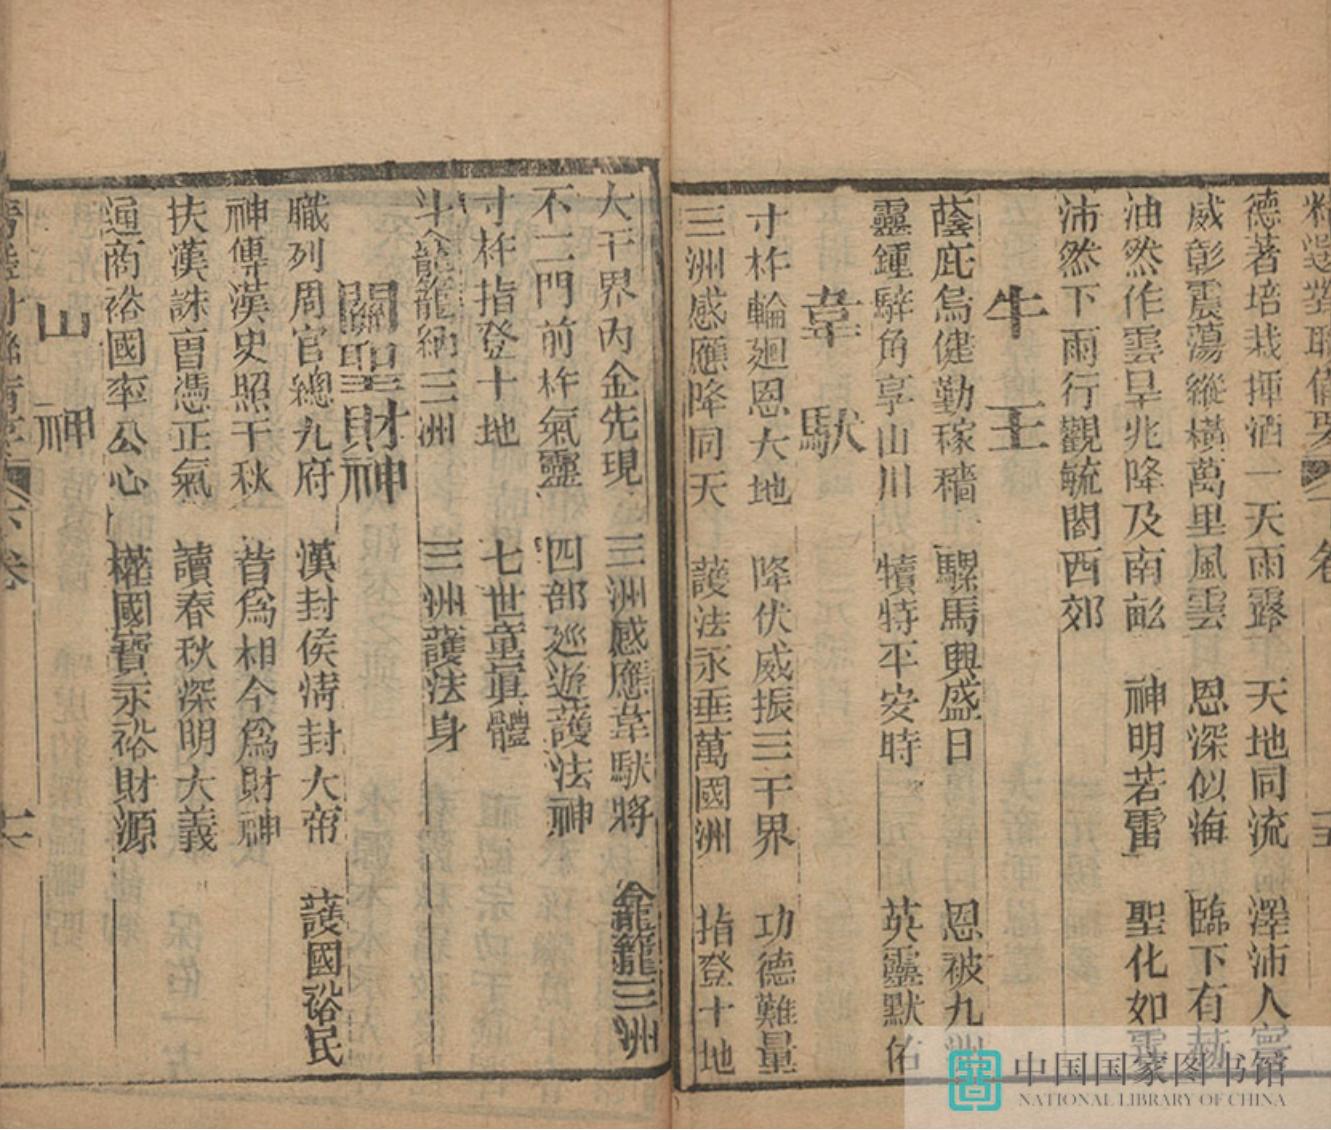 德著培栽揮洒一天雨露 天地同流 澤沛人寰
威彰震蕩縱橫萬里風雲 恩深似海 臨下有赫
油然作雲呈兆降及南畝 神明若雷 聖化如雲
沛然下雨行觀毓閣西郊
牛王
蔭庇烏健勤稼穡 騾馬興盛日 恩被九洲
靈鍾騂角享山川 犢特平安時 英靈默佑
韋馱
寸杵輪廻恩大地 降伏威振三千界 功德難量
三洲感應降同天 護法永垂萬國洲 指登十地
大千界內金先現 三洲感應韋馱將 龕籠三洲
不二門前杵氣靈 四部巡遊護法神
寸杵指登十地 七世童眞體
斗龕籠納三洲 三洲護法身
關聖財神
職列周官總九府 漢封侯淸封大帝 護國裕民
神傳漢史照千秋 昔爲相今爲財神
扶漢誅曺憑正氣 讀春秋深明大義
通商裕國率公心 權國寶永裕財源
山神
下卷
中国国家图书馆
NATIONAL LIBRARY OF CHINA